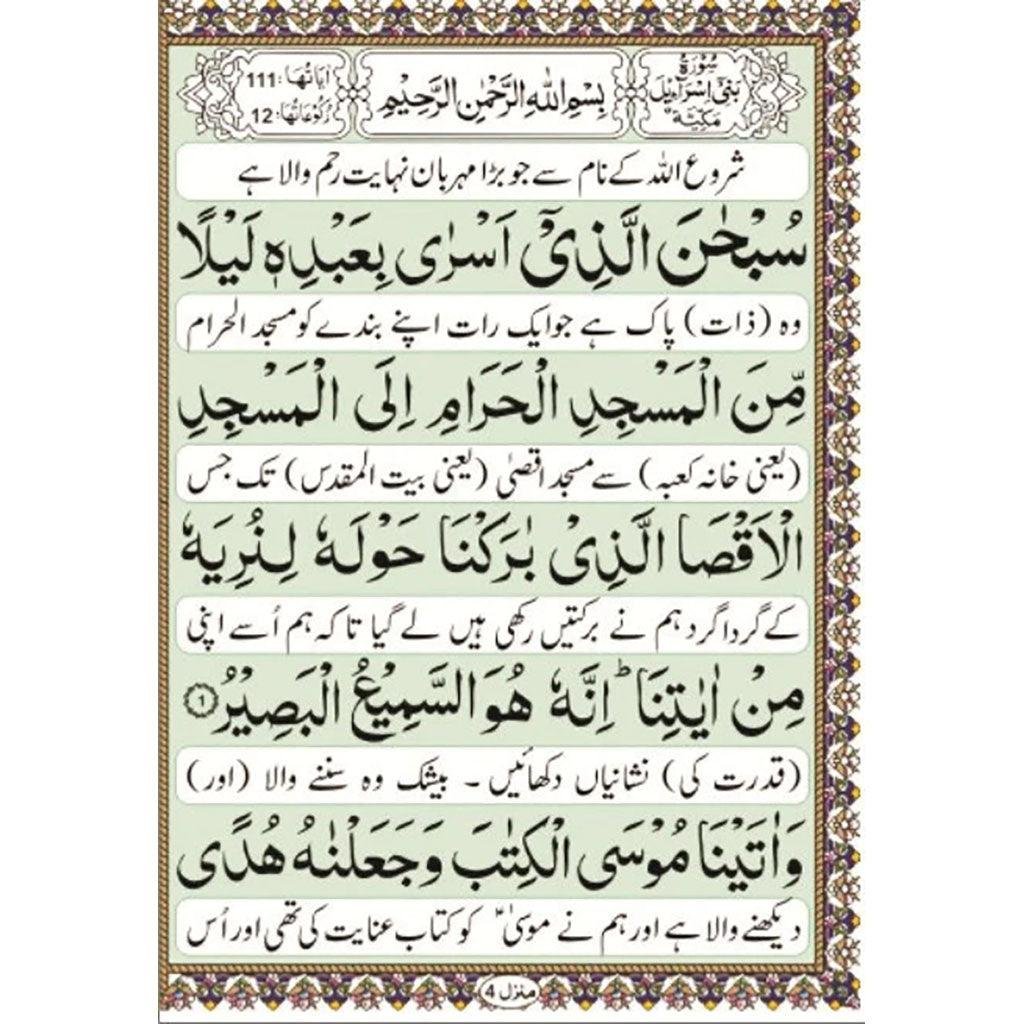 سُوْرَةُ
بَنِیْۤ اِسْرَآءِیْلَ
مَكِّیَّةٌ
بِسْمِ اللّٰهِ الرَّحْمٰنِ الرَّحِیْمِ
اٰیَاتُهَا: 111
رُكُوْعَاتُهَا: 12
شروع اللہ کے نام سے جو بڑا مہربان نہایت رحم والا ہے
سُبْحٰنَ الَّذِیْۤ اَسْرٰی بِعَبْدِهٖ لَیْلًا
وہ (ذات) پاک ہے جو ایک رات اپنے بندے کو مسجد الحرام
مِّنَ الْمَسْجِدِ الْحَرَامِ اِلَی الْمَسْجِدِ
(یعنی خانہ کعبہ) سے مسجد اقصیٰ (یعنی بیت المقدس) تک جس
الْاَقْصَا الَّذِیْ بٰرَكْنَا حَوْلَهٗ لِنُرِیَهٗ
کے گردا گرد ہم نے برکتیں رکھی ہیں لے گیا تا کہ ہم اُسے اپنی
مِنْ اٰیٰتِنَا ؕ اِنَّهٗ هُوَ السَّمِیْعُ الْبَصِیْرُ ۝۱
(قدرت کی) نشانیاں دکھائیں ۔ بیشک وہ سننے والا (اور)
وَ اٰتَیْنَا مُوْسَی الْكِتٰبَ وَ جَعَلْنٰهُ هُدًی
دیکھنے والا ہے اور ہم نے موسیٰ ؑ کو کتاب عنایت کی تھی اور اُس
منزل 4